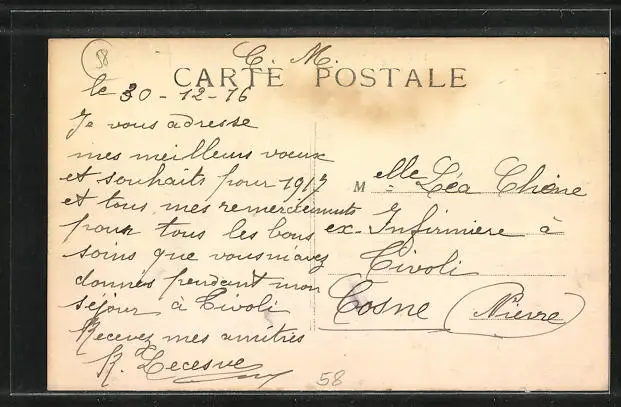 58
C. M.
CARTE POSTALE
le 30-12-16
Je vous adresse
mes meilleurs voeux
et souhaits pour 1917
et tous mes remerciements
pour tous les bons
soins que vous m'avez
donnés pendant mon
séjour à Tivoli
Recevez mes amitiés
R. Lecesve
M elle Léa Chêne
ex-Infirmiere à
Tivoli
Cosne (Nievre)
58